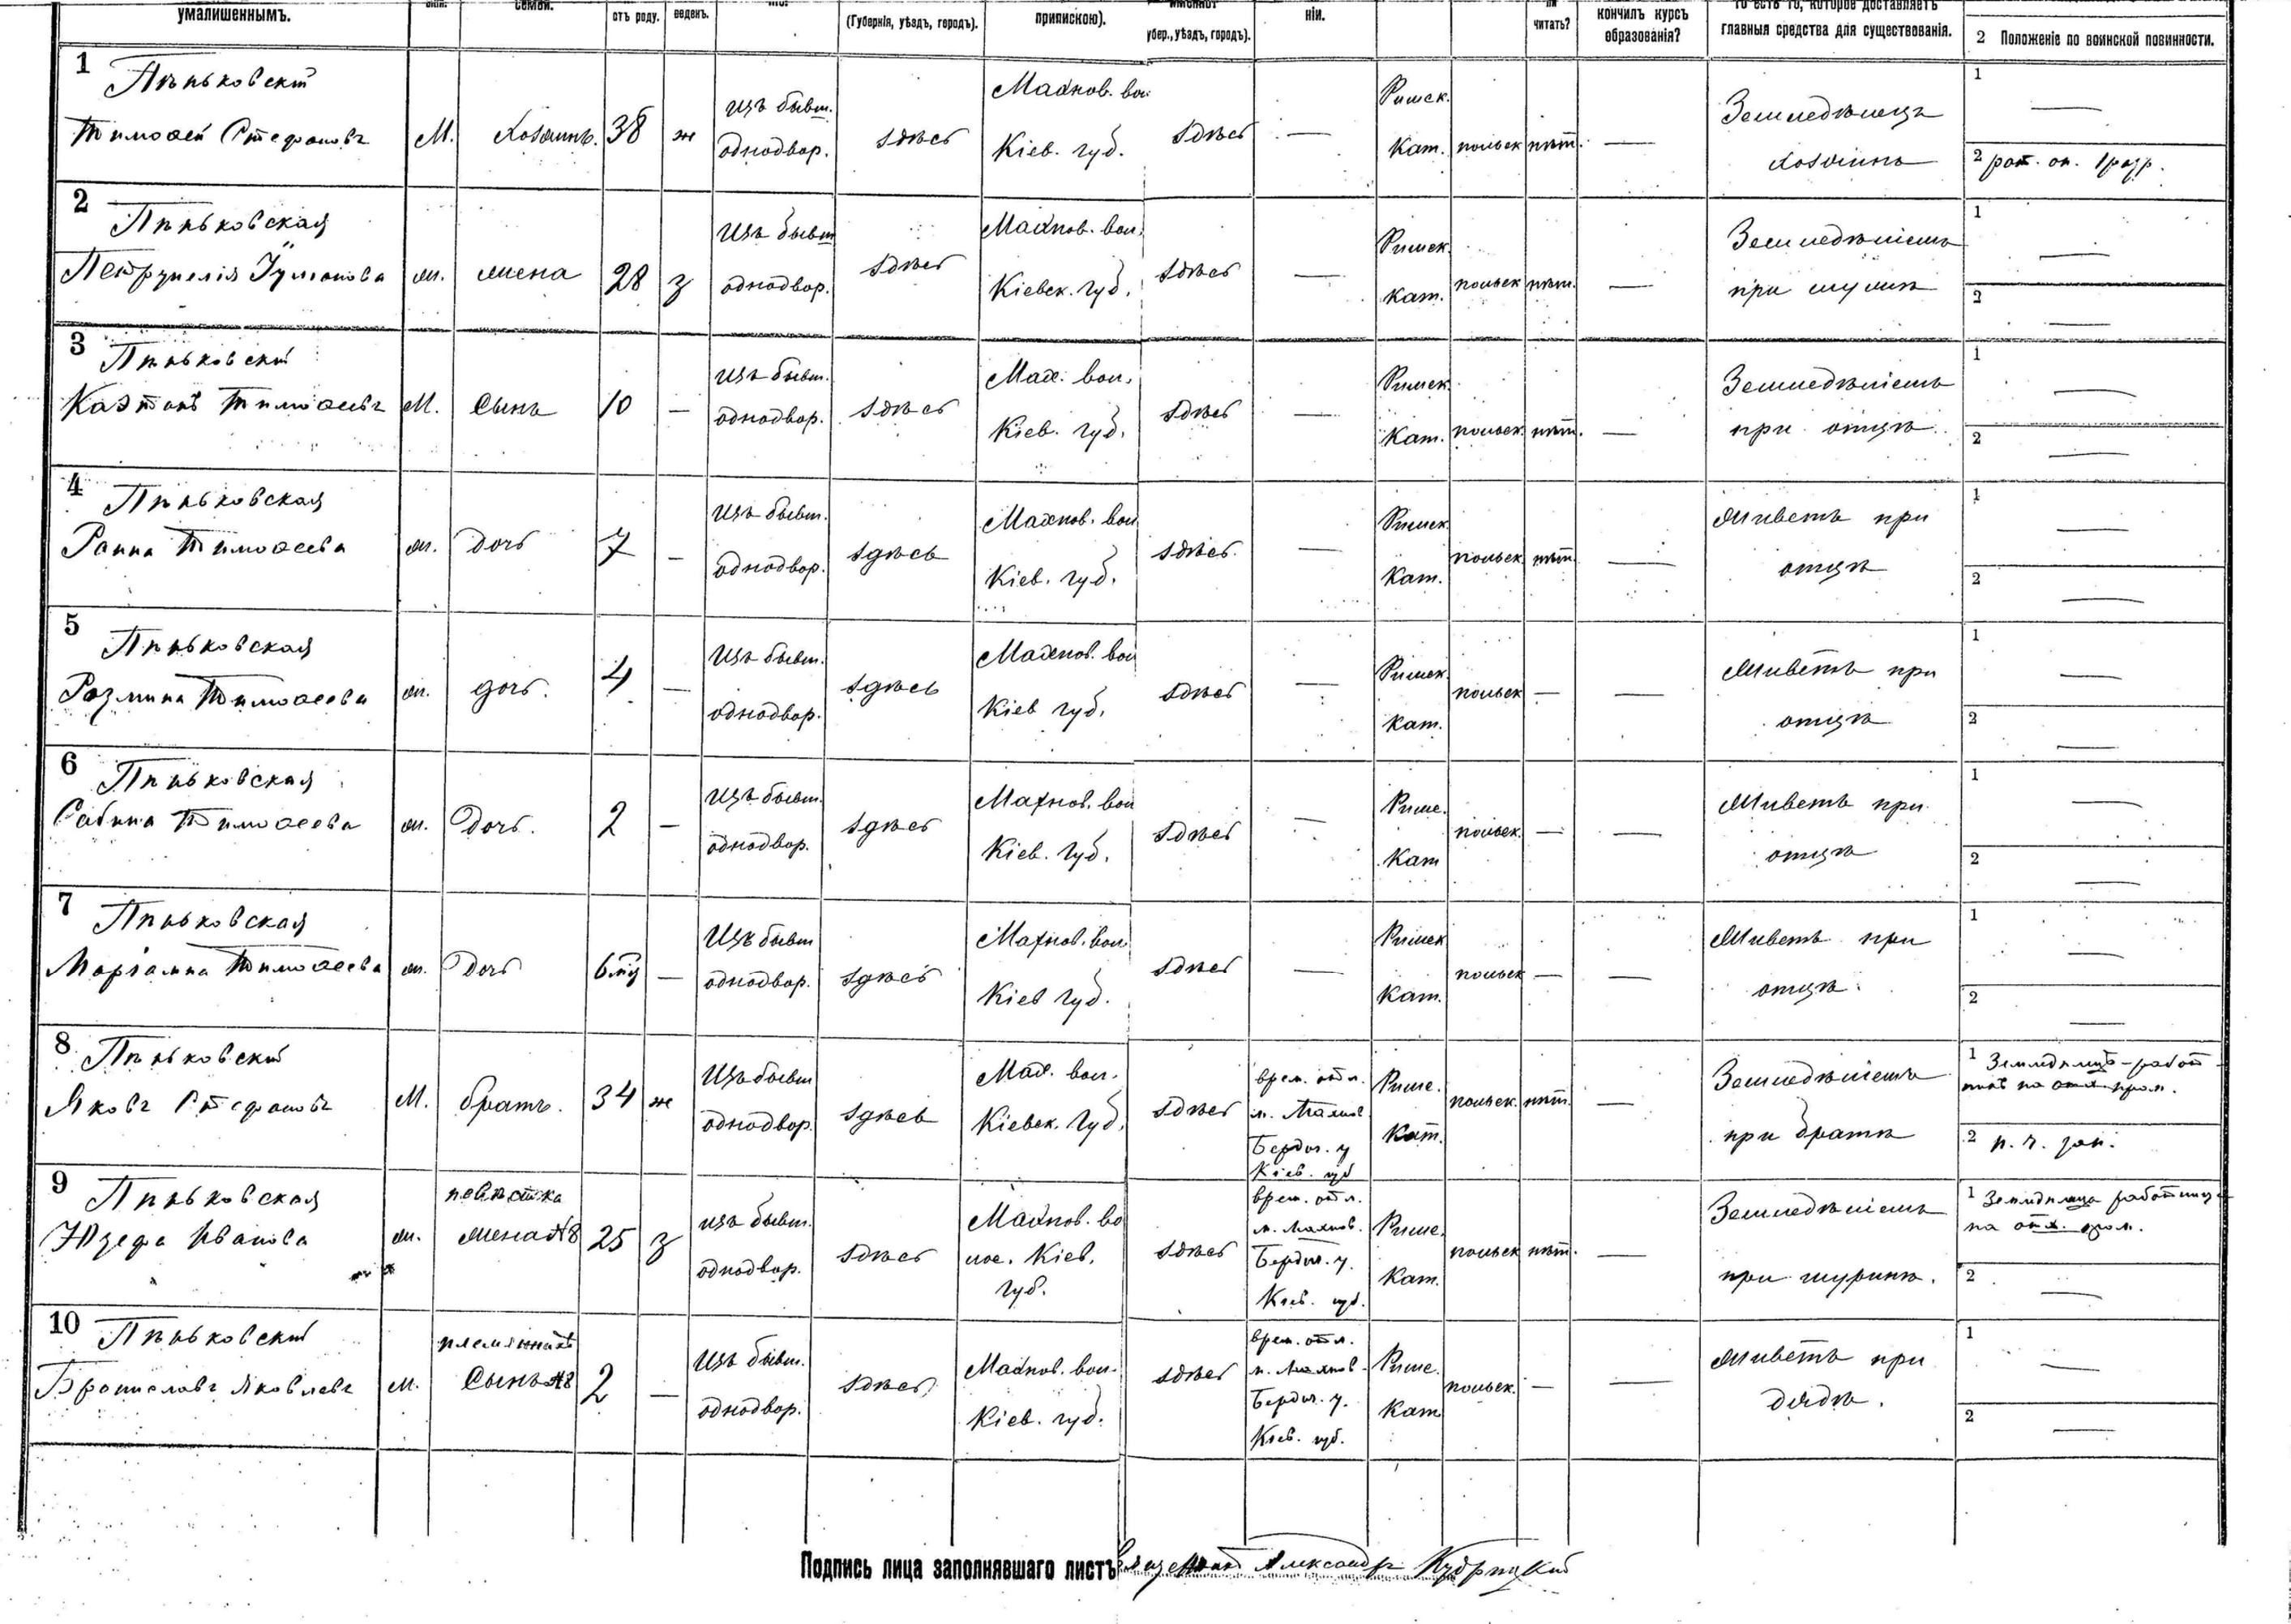 умалишеннымъ.
семьи.
отъ роду.
веденъ.
(Губернія, уѣздъ, городъ).
припискою).
убер., уѣздъ, городъ).
ніи.
читать?
кончилъ курсъ
образованія?
то есть то, которое доставляетъ
главныя средства для существованія.
2 Положеніе по воинской повинности.
1
Пѣньковскій
Тимоѳей Стефановъ
М.
Хозяинъ.
38
ж
Изъ бывш.
однодвор.
здѣсь
Махнов. вол.
Кіев. губ.
здѣсь
—
Римск.
Кат.
польск
нѣт.
—
Земледѣлецъ
хозяинъ
1 —
2 рат. оп. 1 разр.
2
Пѣньковская
Петрунелія Гумонова
ж.
жена
28
з
Изъ бывш
однодвор.
здѣсь
Махнов. вол.
Кіевск. губ.
здѣсь
—
Римск.
Кат.
польск
нѣт.
—
Земледѣліемъ
при мужѣ
1 —
2 —
3
Пѣньковскій
Каэтанъ Тимоѳеевъ
М.
Сынъ
10
—
Изъ бывш.
однодвор.
здѣсь
Мах. вол.
Кіев. губ.
здѣсь
—
Римск
Кат.
польск.
нѣт.
—
Земледѣліемъ
при отцѣ
1 —
2 —
4
Пѣньковская
Ганна Тимоѳеева
ж.
дочь
7
—
Изъ бывш.
однодвор.
здѣсь
Махнов. вол
Кіев. губ.
здѣсь.
—
Римск
Кат.
польск
нѣт.
—
Живетъ при
отцѣ
1 —
2 —
5
Пѣньковская
Розмина Тимоѳеева
ж.
дочь.
4
—
Изъ бывш.
однодвор.
здѣсь
Махнов. вол
Кіев губ.
здѣсь
—
Римск
Кат.
польск
—
—
Живетъ при
отцѣ
1 —
2 —
6
Пѣньковская
Сабина Тимоѳеева
ж.
Дочь.
2
—
Изъ бывш.
однодвор.
здѣсь
Махнов. вол
Кіев. губ.
здѣсь
—
Римс.
Кат
польск.
—
—
Живетъ при
отцѣ
1 —
2 —
7
Пѣньковская
Маріанна Тимоѳеева
ж.
Дочь
6 мц
—
Изъ бывш
однодвор.
здѣсь
Махнов. вол
Кіев губ.
здѣсь
—
Римск
Кат.
польск
—
—
Живетъ при
отцѣ.
1 —
2 —
8
Пѣньковскій
Яковъ Стефановъ
М.
братъ.
34
ж
Изъ бывш
однодвор.
здѣсь
Мах. вол.
Кіевск. губ.
здѣсь
врем. отл.
м. Махнов
Бердич. у
Кіев. губ
Римс.
Кат.
польск.
нѣт.
—
Земледѣліемъ
при братѣ
2 п. ч. зап.
9
Пѣньковская
Юзефа Иванова
ж.
невѣстка
жена №8
25
з
изъ бывш.
однодвор.
здѣсь
Махнов. во
лос. Кіев.
губ.
здѣсь
врем. отл.
м. Махнов.
Бердич. у.
Кіев. губ.
Римс.
Кат.
польск
нѣт.
—
Земледѣліемъ
при шуринѣ.
на отх. пром.
2 —
10
Пѣньковскій
Брониславъ Яковлевъ
М.
племянникъ
Сынъ №8
2
—
Изъ бывш.
однодвор.
здѣсь
Махнов. вол.
Кіев. губ.
здѣсь
врем. отл.
м. Махнов.
Бердич. у.
Кіев. губ.
Римс.
Кат
польск.
—
—
Живетъ при
дядѣ.
1 —
2 —
Подпись лица заполнявшаго листъ Александръ Кудрицкій